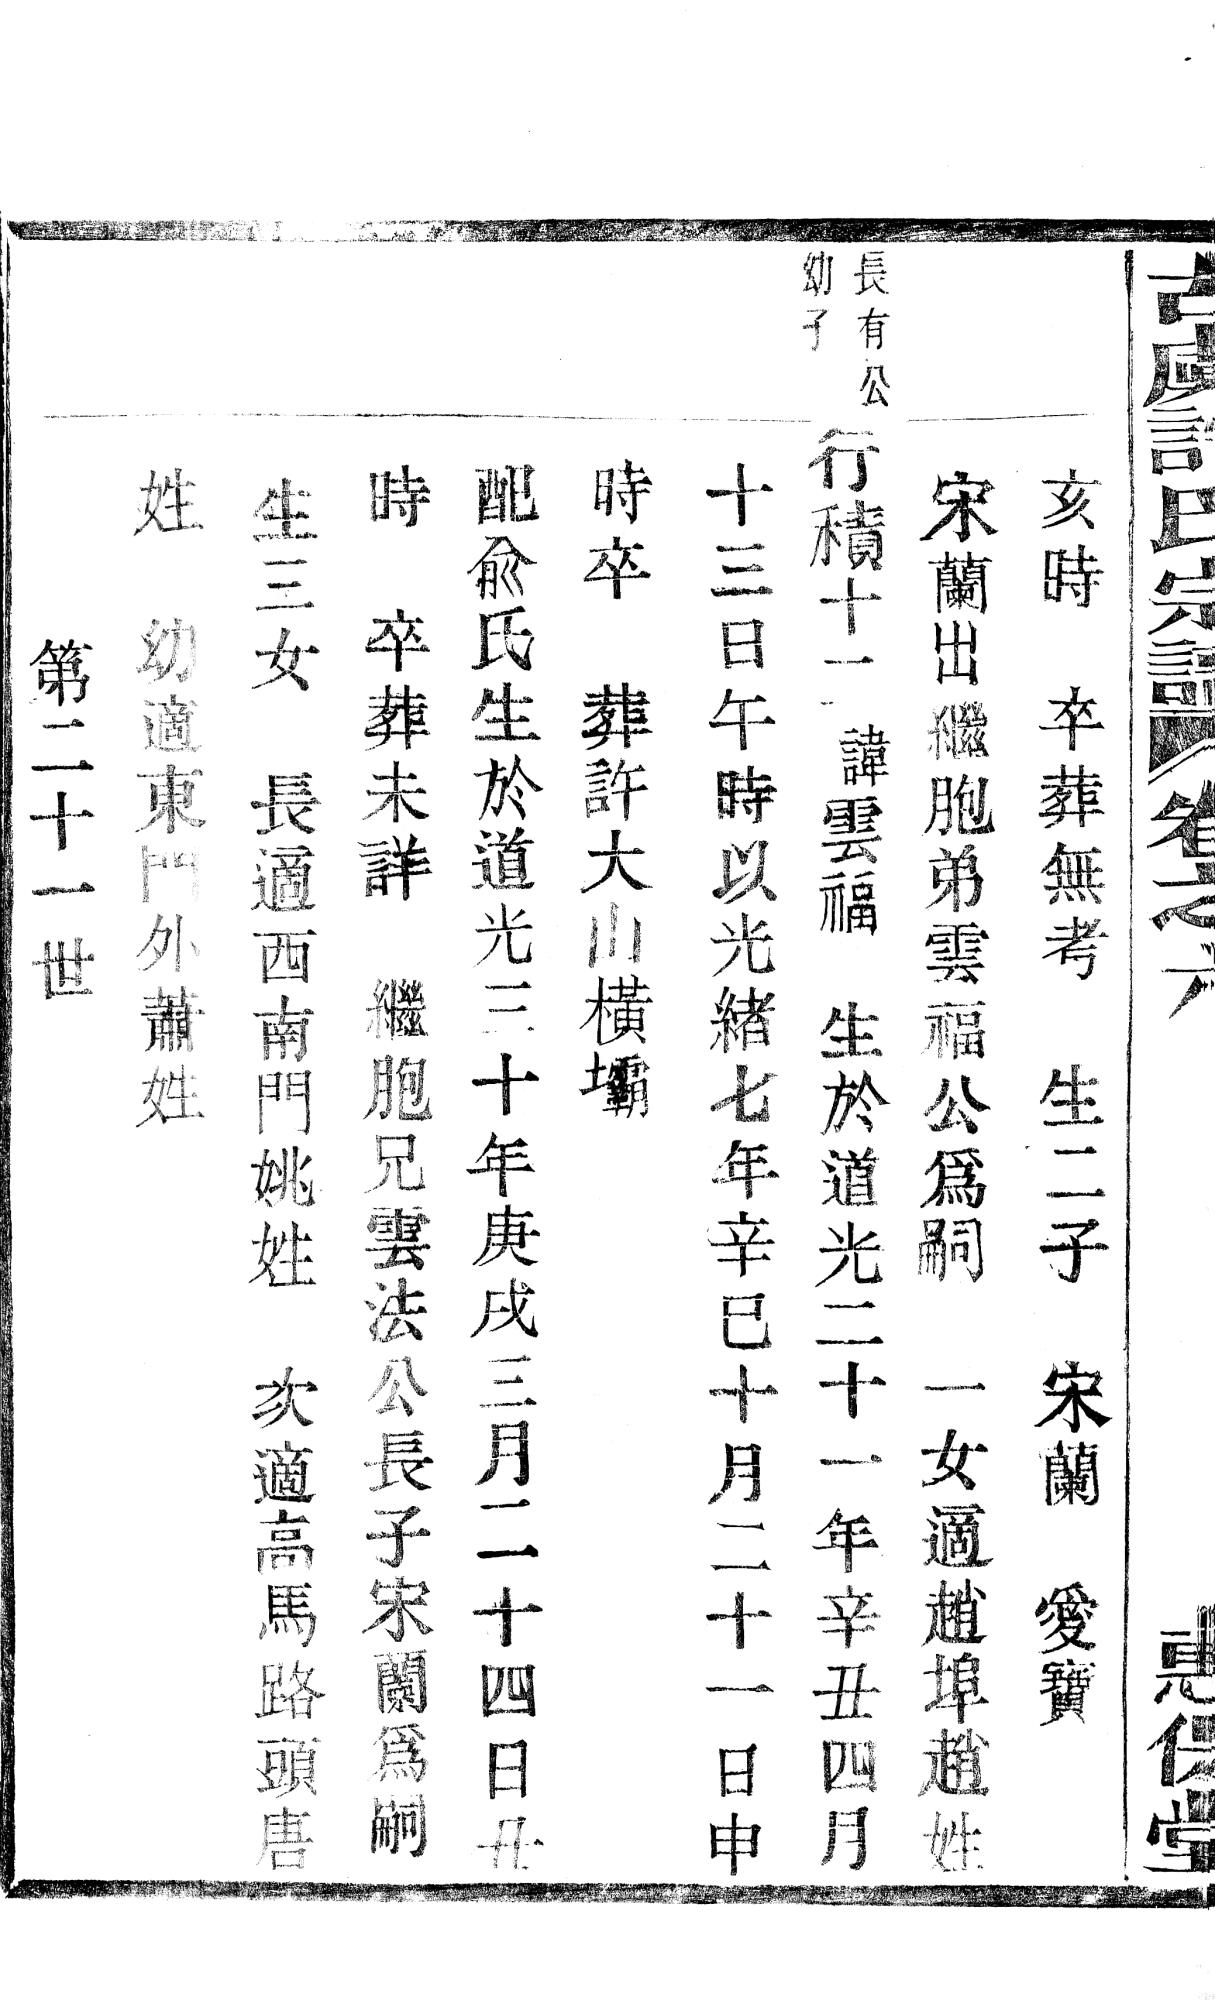 古虞許氏宗譜 卷之六 惠保堂
亥時 卒葬無考 生二子 宋蘭 愛寶
宋蘭出繼胞弟雲福公爲嗣 一女適趙埠趙姓
長有公
幼子
行積十一 諱雲福 生於道光二十一年辛丑四月
十三日午時以光緒七年辛巳十月二十一日申
時卒 葬許大山橫壩
配俞氏生於道光三十年庚戌三月二十四日丑
時 卒葬未詳 繼胞兄雲法公長子宋蘭爲嗣
生三女 長適西南門姚姓 次適高馬路頭唐
姓 幼適東門外蕭姓
第二十一世